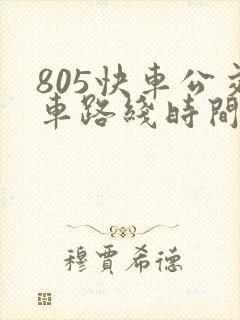 805快車公交
車路綫時間
穆賈希德